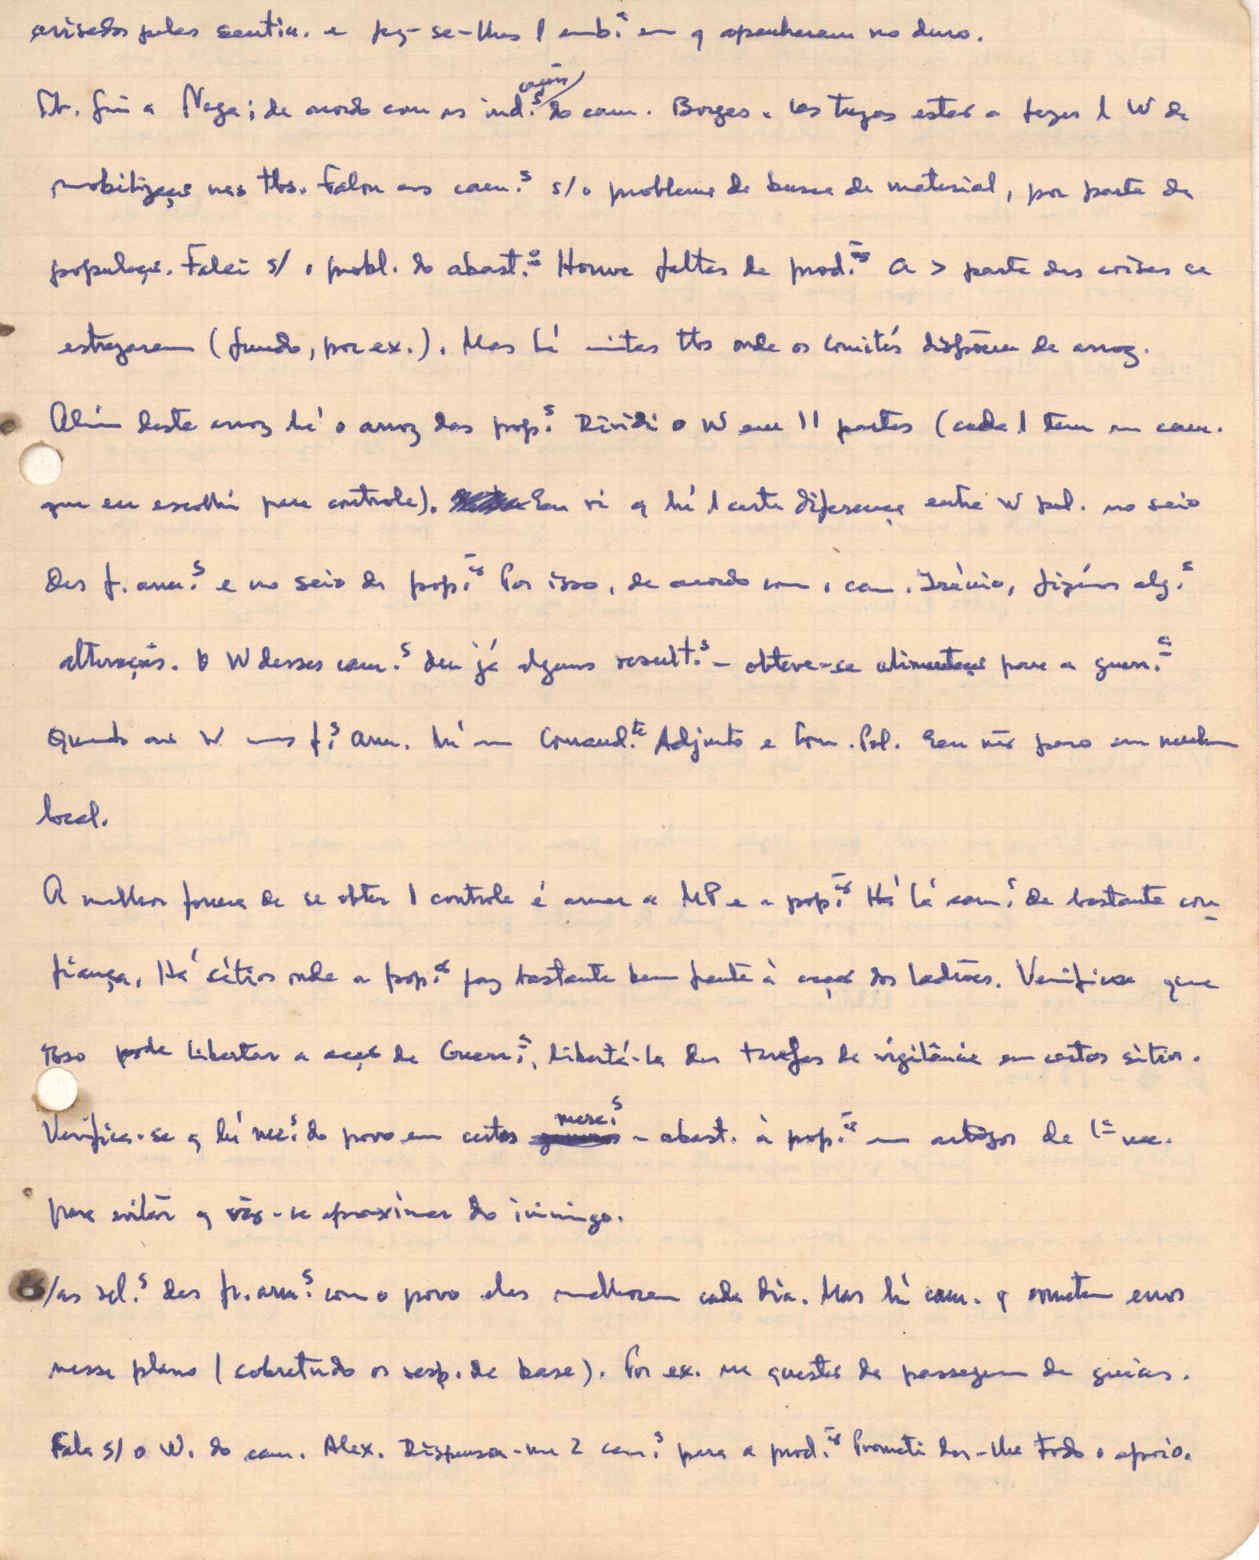 avisados pelas sentin. e fez-se-lhes 1 emb.ª em q apanharam no duro.
Tb. fui a Naga; de acordo com as ind.ˢ do cam. Borges. os tugas estão a fazer 1 W de
ações
mobilização nas tbs. Falou aos cam.ˢ s/o problema de busca de material, por parte da
população. Falei s/ o probl. do abast.º Houve faltas de prod.ão A > parte das coisas se
estragaram (fundo, por ex.). Mas há mtas tbs onde os Comités dispõem de arroz.
Além deste arroz há o arroz das pop.ˢ Dividi o W em 11 partes (cada 1 tem um cam.
que eu escolhi para controle). Eu vi q há 1 certa diferença entre W pol. no seio
das f. arm.ˢ e no seio da pop.ão Por isso, de acordo com o cam. Irénio, fizémos alg.ˢ
alterações. O W desses cam.ˢ deu já alguns result.ˢ - obteve-se alimentação para a guerr.ª
Quando ao W nas f.ˢ arm. há um Comand.te Adjunto e Com. Pol. Eu não paro em nenhum
local.
A melhor forma de se obter 1 controle é armar a MP e a pop.ão Há lá cam.ˢ de bastante con-
fiança. Há sítios onde a pop.ão faz bastante bem frente à acção dos ladrões. Verifica-se que
isso pode libertar a acção da Guerr.ª, libertá-la das tarefas de vigilância em certos sítios.
Verifica-se q há nec.ˢ do povo em certas merc.ˢ - abast. à pop.ão em artigos de 1ª nec.
para evitar q vão-se aproximar do inimigo.
S/as rel.ˢ das fr. arm.ˢ com o povo elas melhoram cada dia. Mas há cam. q cometem erros
nesse plano (sobretudo os resp. de base). Por ex. na questão da passagem de guias.
Fala s/ o W. do cam. Alex. Dispensou-me 2 cam.ˢ para a prod.ão Prometi dar-lhe todo o apoio.